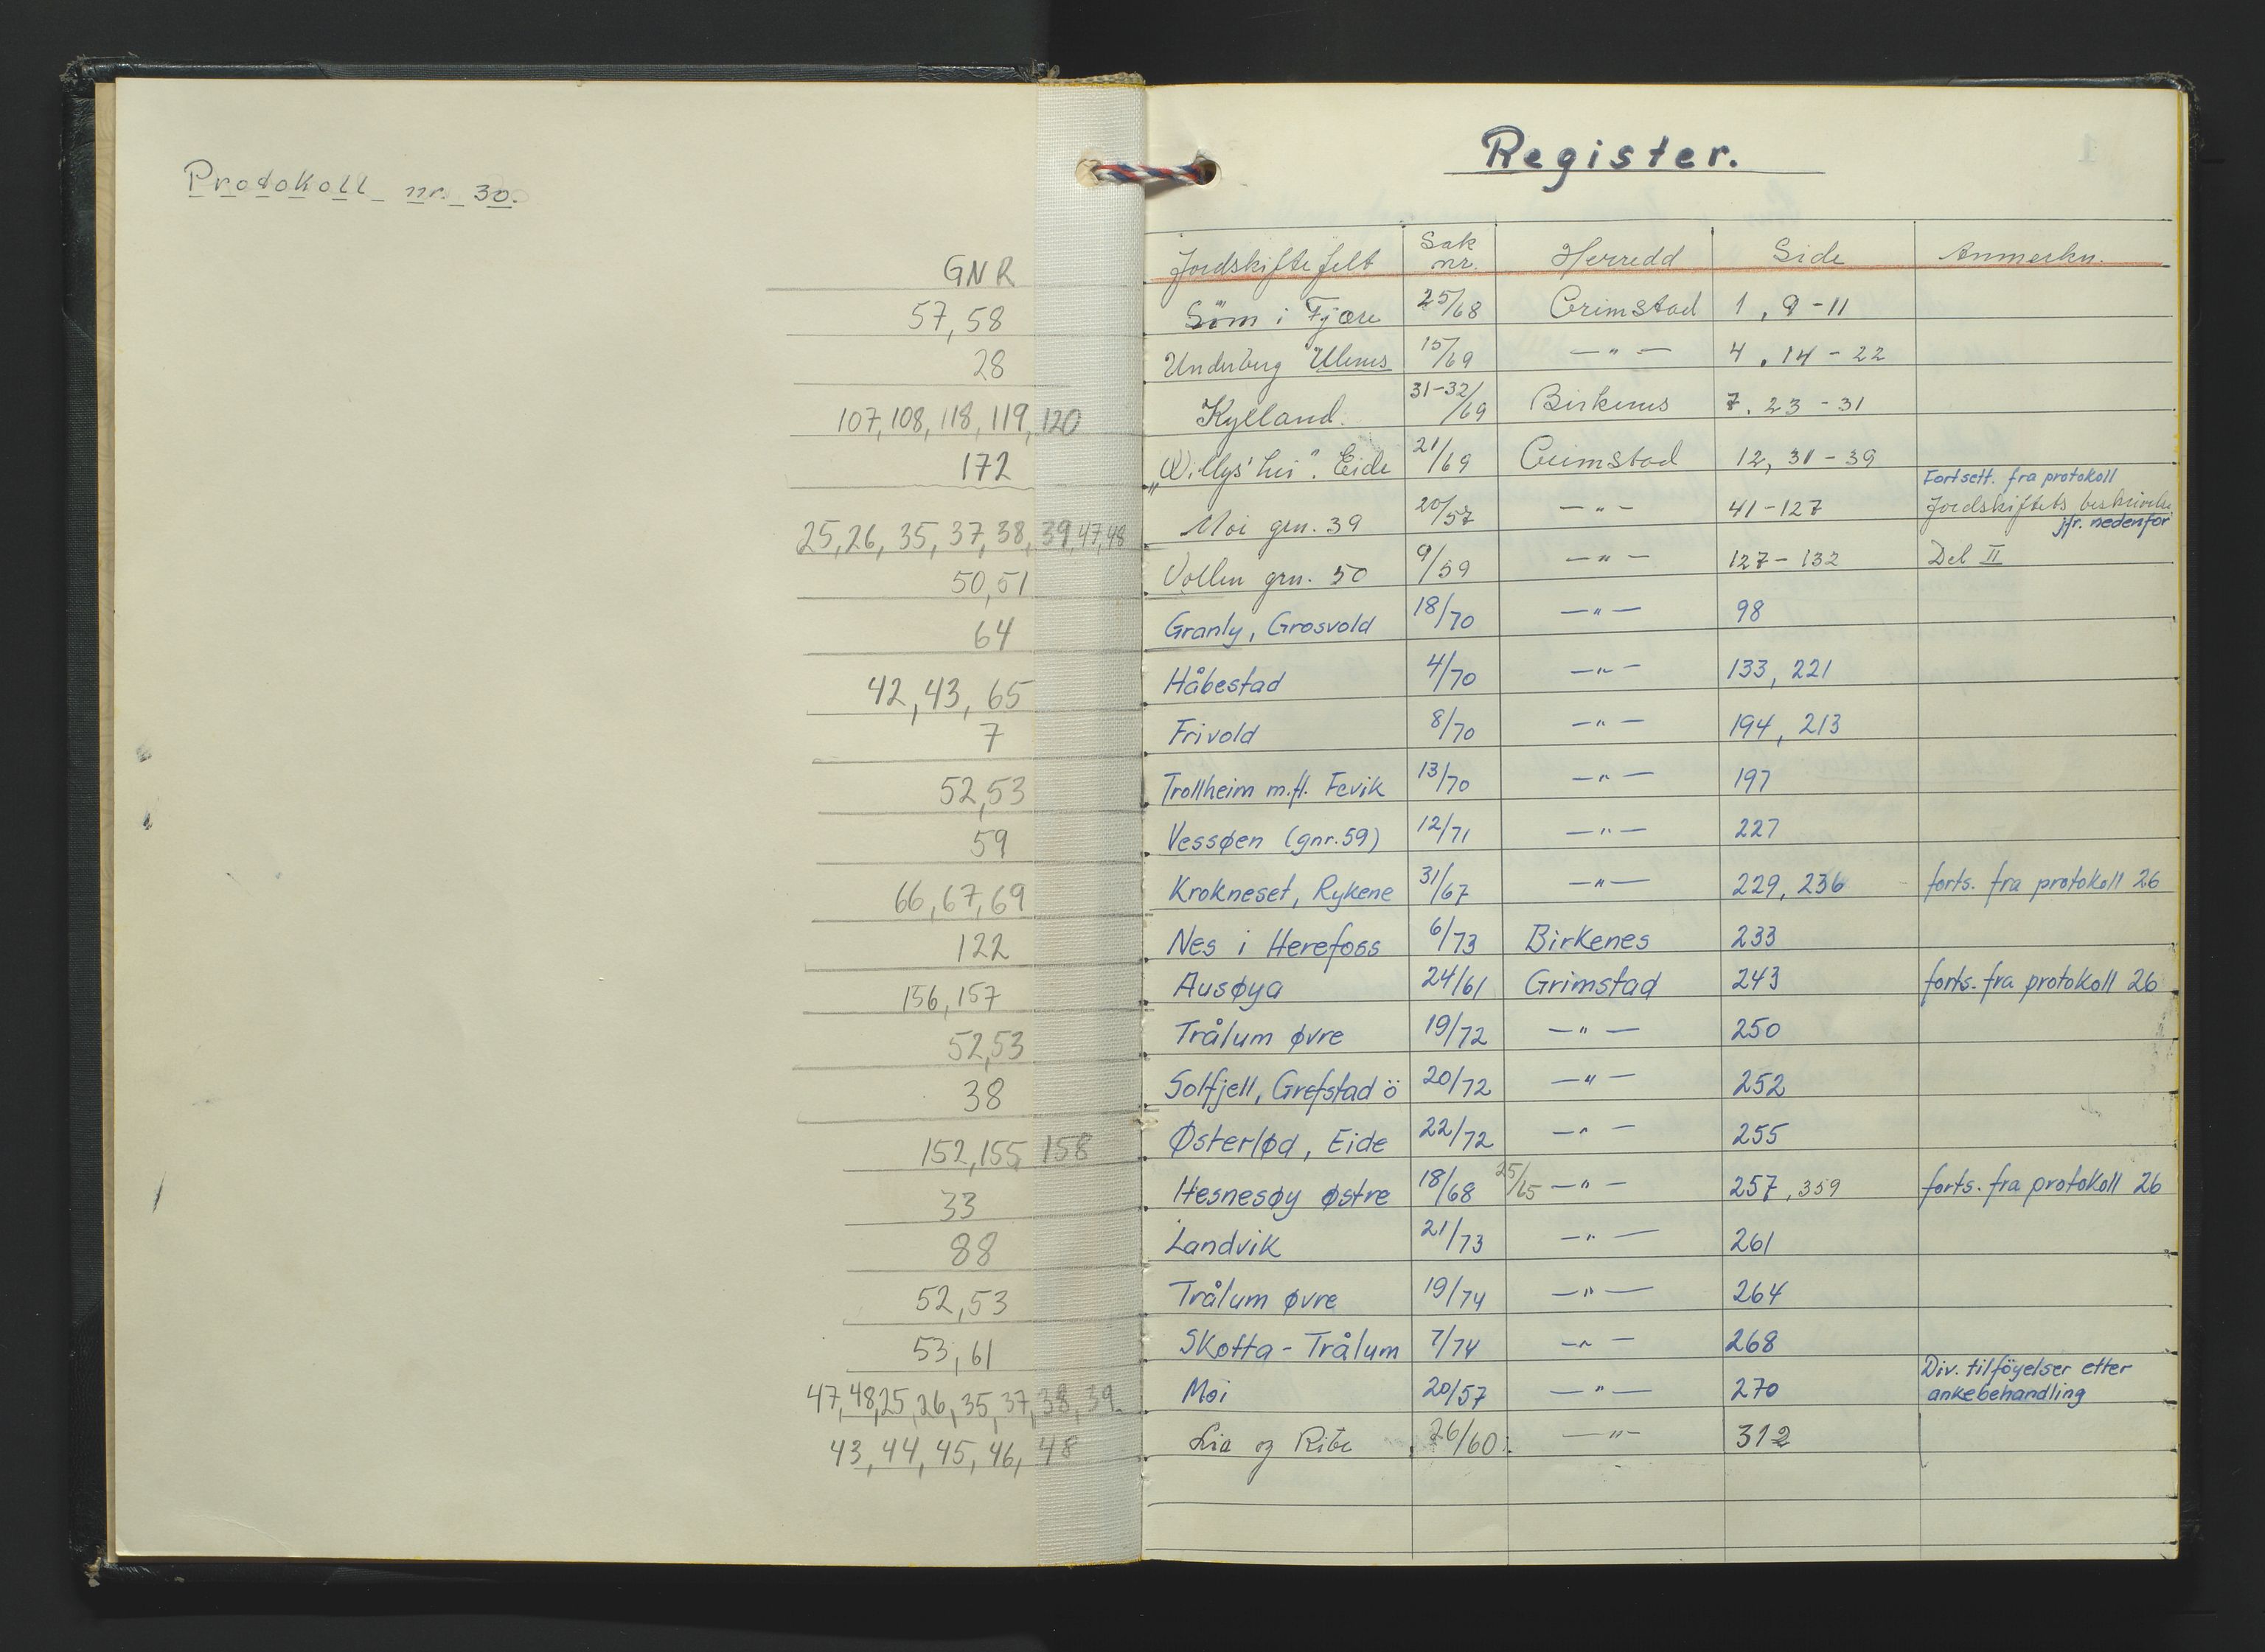 Protokoll nr. 30.
GNR
57, 58
28
107, 108, 118, 119, 120
172
25, 26, 35, 37, 38, 39, 47, 48
50, 51
64
42, 43, 65
7
52, 53
59
66, 67, 69
122
156, 157
52, 53
38
152, 155, 158
33
88
52, 53
53, 61
47, 48, 25, 26, 35, 37, 38, 39
43, 44, 45, 46, 48
Register.
Jordskiftefelt Sak nr. Herredd Side Anmerkn.
Söm i Fjære 25/68 Grimstad 1, 9-11
Underberg Ulenes 15/69 -"- 4, 14-22
Kylland. 31-32/69 Birkenes 7, 23-31
„Willys' hei". Eide 21/69 Grimstad 12, 31-39
Moi grn. 39 20/57 -"- 41-127 Fortsett. fra protokoll Jordskiftets beskrivelse jfr. nedenfor
Vollen grn. 50 9/59 -"- 127-132 Del II
Granly, Grosvold 18/70 -"- 98
Håbestad 4/70 -"- 133, 221
Frivold 8/70 -"- 194, 213
Trollheim m.fl. Fevik 13/70 -"- 197
Vessøen (gnr. 59) 12/71 -"- 227
Krokneset, Rykene 31/67 -"- 229, 236 forts. fra protokoll 26
Nes i Herefoss 6/73 Birkenes 233
Ausøya 24/61 Grimstad 243 forts. fra protokoll 26
Trålum øvre 19/72 -"- 250
Solfjell, Grefstad ö 20/72 -"- 252
Østerlød, Eide 22/72 -"- 255
Hesnesøy østre 18/68 25/65 -"- 257, 359 forts. fra protokoll 26
Landvik 21/73 -"- 261
Trålum øvre 19/74 -"- 264
Skotta - Trålum 7/74 -"- 268
Moi 20/57 -"- 270 Div. tilföyelser etter ankebehandling
Lia og Ribe 26/60 -"- 312